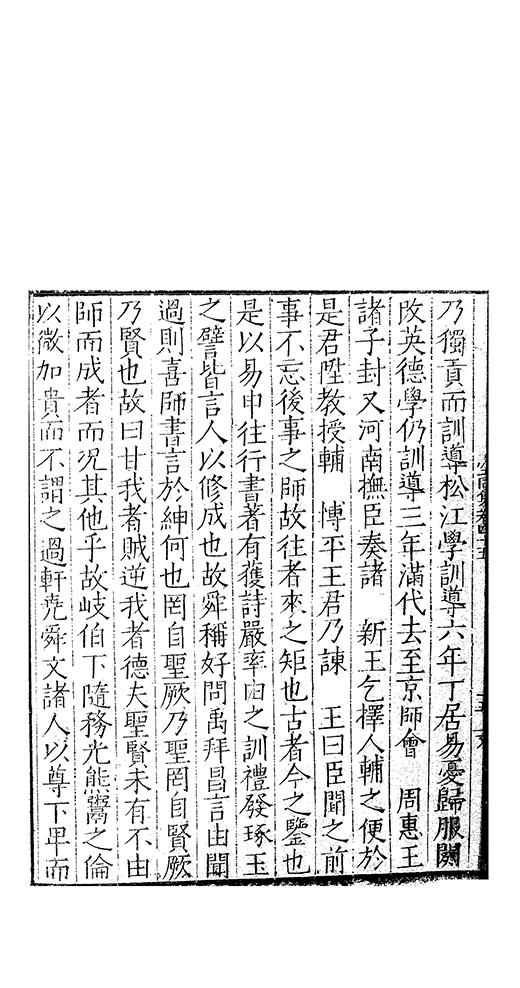 乃獨貢而訓導松江學訓導六年丁居易憂歸服闋
改英德學仍訓導三年滿代去至京師會　周惠王
諸子封又河南撫臣奏諸　新王乞擇人輔之便於
是君陞教授輔　博平王君乃諫　王曰臣聞之前
事不忘後事之師故往者來之矩也古者今之鑒也
是以易申往行書著有獲詩嚴率由之訓禮發琢玉
之譬皆言人以修成也故舜稱好問禹拜昌言由聞
過則喜師書言於紳何也罔自聖厥乃聖罔自賢厥
乃賢也故曰甘我者賊逆我者德夫聖賢未有不由
師而成者而况其他乎故岐伯下隨務光熊鬻之倫
以微加貴而不謂之過軒堯舜文諸人以尊下卑而